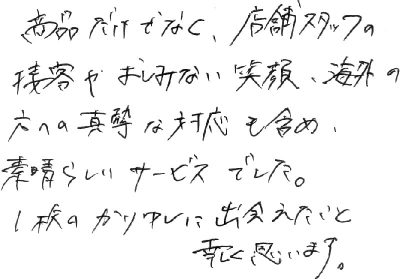 商品だけでなく、店舗スタッフの
接客やおしみない笑顔、海外の
方への真摯な対応も含め、
素晴らしいサービスでした。
1枚のかりゆしに出会えたこと
幸く思います。